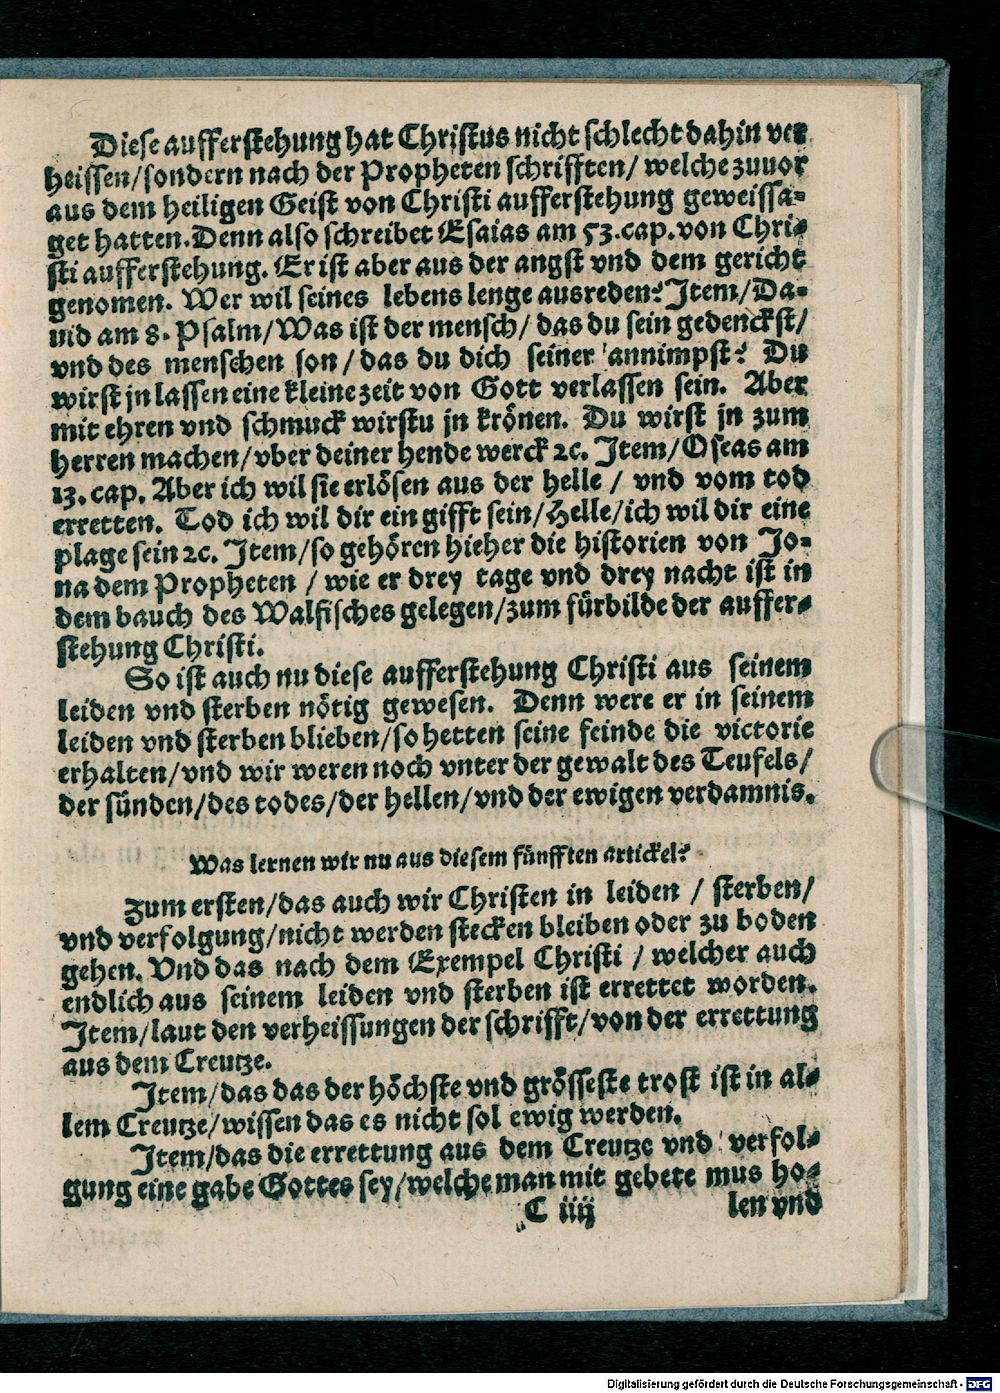 Diese aufferstehung hat Christus nicht schlecht dahin ver
heissen/sondern nach der Propheten schrifften/ welche zuuor
aus dem heiligen Geist von Christi aufferstehung geweissa-
get hatten. Denn also schreibet Esaias am 53. cap. von Chri-
sti aufferstehung. Er ist aber aus der angst vnd dem gericht
genomen. Wer wil seines lebens lenge ausreden? Item/Da-
uid am 8. Psalm/Was ist der mensch/ das du sein gedenckst/
vnd des menschen son/das du dich seiner annimpst? Du
wirst jn lassen eine kleine zeit von Gott verlassen sein. Aber
mit ehren vnd schmuck wirstu jn krönen. Du wirst jn zum
herren machen/vber deiner hende werck 2c. Item/Oseas am
13. cap. Aber ich wil sie erlösen aus der helle / vnd vom tod
erretten. Tod ich wil dir ein gifft sein/Helle/ich wil dir eine
plage sein 2c. Item/so gehören hieher die historien von Jo-
na dem Propheten / wie er drey tage vnd drey nacht ist in
dem bauch des Walfisches gelegen/zum fürbilde der auffer-
stehung Christi.
So ist auch nu diese aufferstehung Christi aus seinem
leiden vnd sterben nötig gewesen. Denn were er in seinem
leiden vnd sterben blieben/so hetten seine feinde die victorie
erhalten/vnd wir weren noch vnter der gewalt des Teufels/
der sünden/des todes/der hellen/vnd der ewigen verdamnis.
Was lernen wir nu aus diesem fünfften artickel?
Zum ersten/das auch wir Christen in leiden / sterben/
vnd verfolgung/nicht werden stecken bleiben oder zu boden
gehen. Vnd das nach dem Exempel Christi / welcher auch
endlich aus seinem leiden vnd sterben ist errettet worden.
Item/laut den verheissungen der schrifft/von der errettung
aus dem Creutze.
Item/das das der höchste vnd grösseste trost ist in al-
lem Creutze/wissen das es nicht sol ewig werden.
Item/das die errettung aus dem Creutze vnd verfol-
gung eine gabe Gottes sey/welche man mit gebete mus ho-
C iiij len vnd
Digitalisierung gefördert durch die Deutsche Forschungsgemeinschaft - DFG